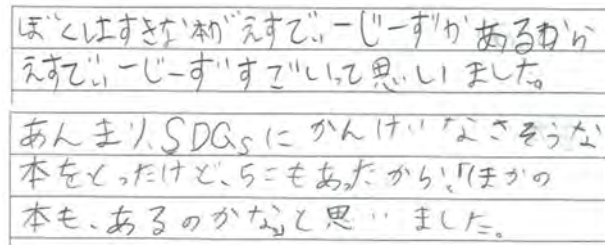 ぼくはすきな本がえすでぃーじーずがあるから
えすでぃーじーずすごいって思いしました。
あんまり、SDGsにかんけいなさそうな
本をとったけど、5こもあったから、「ほかの
本も、あるのかな」と思いました。